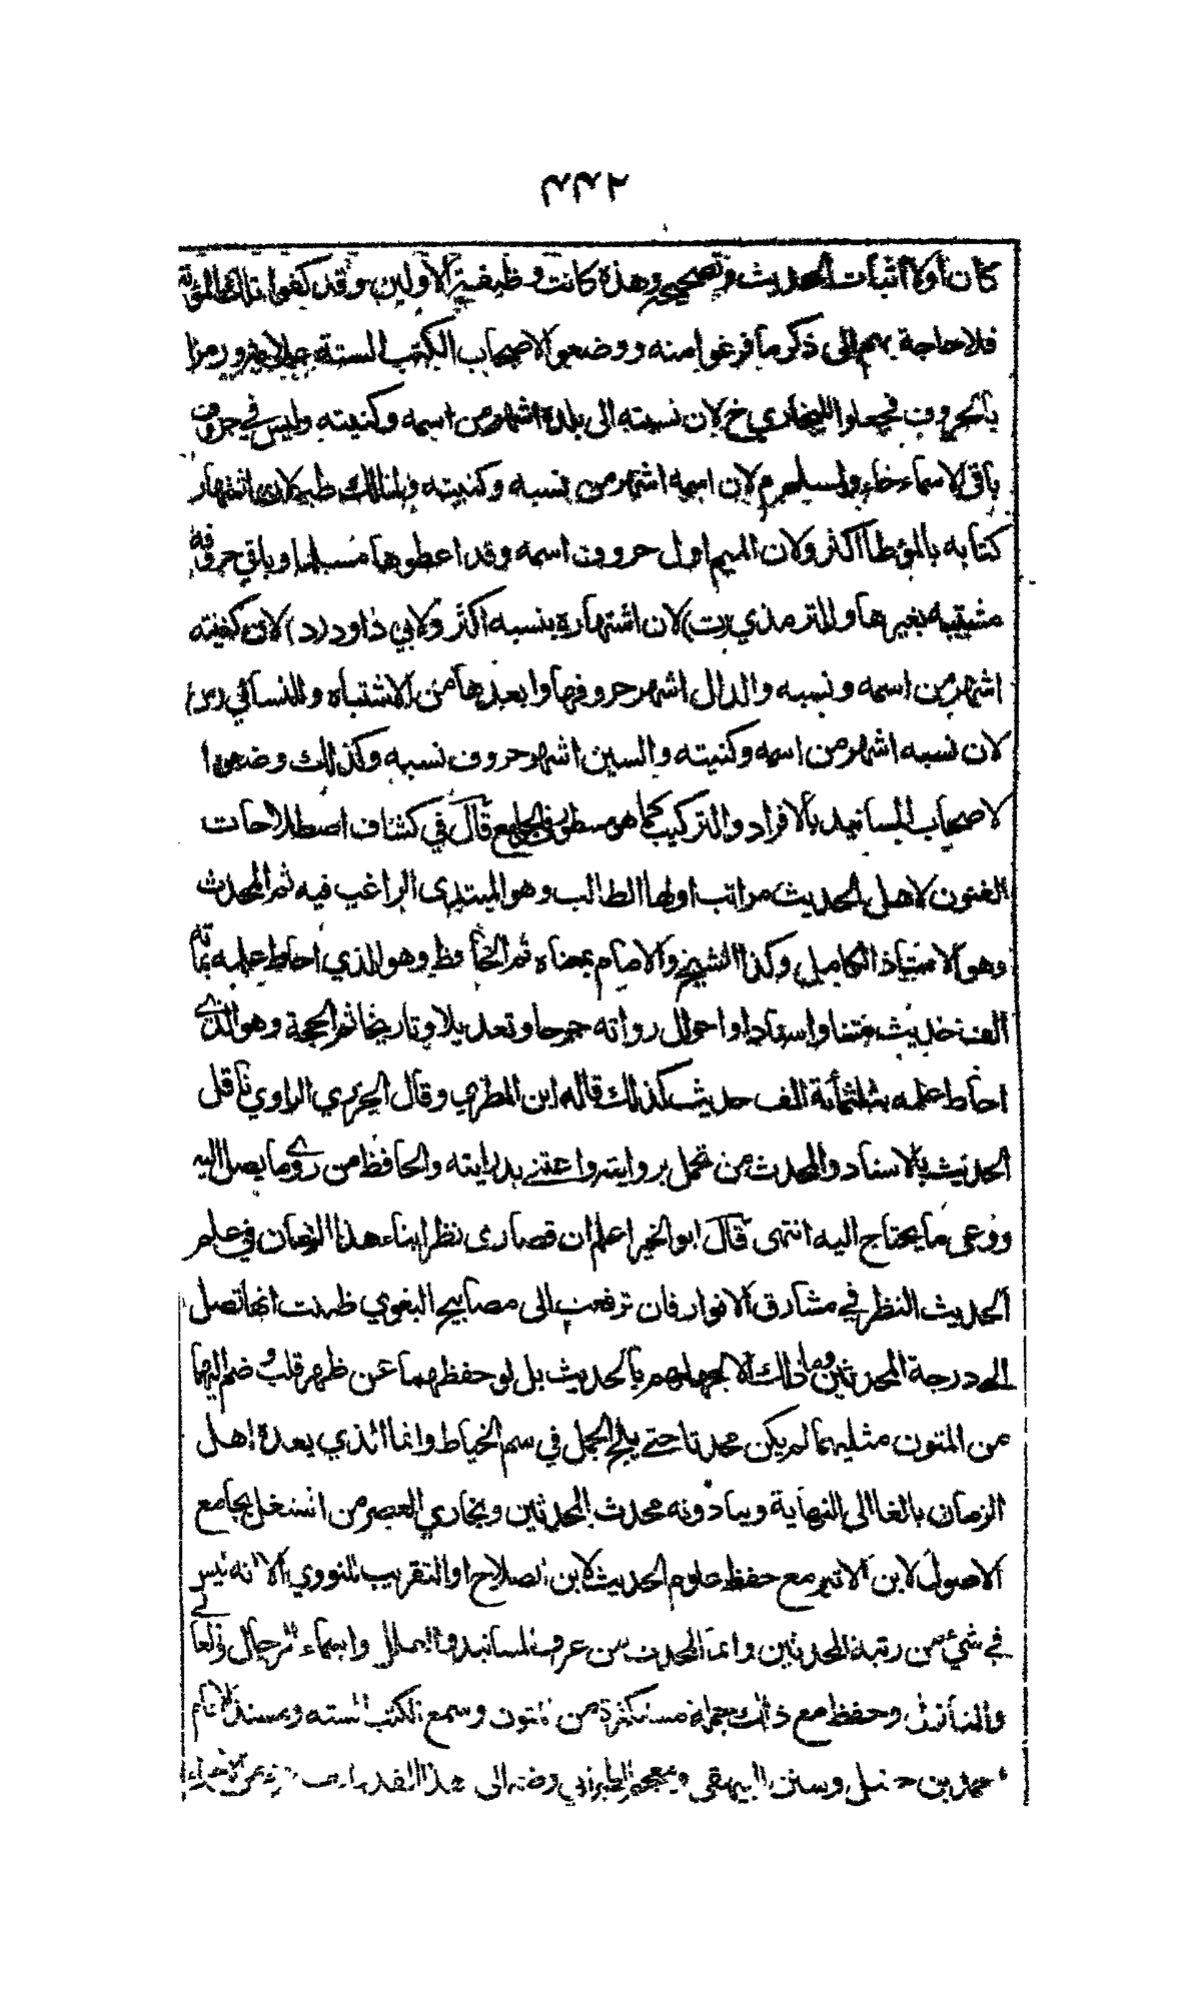 ٤٤٢
كان اولا اثبات الحديث وتصحيحه وهذه كانت وظيفة الاولين وقد كفوا تلك المؤنة
فلا حاجة بهم الى ذكر ما فرغوا منه ووضعوا لاصحاب الكتب الستة ورمزا
بالحروف فجعلوا للبخاري خ لان نسبته الى بلده اشهر من اسمه وكنيته وليس في حروف
باقي الاسماء خاء ولمسلم م لان اسمه اشهر من نسبه وكنيته ولمالك طه لان اشتهار
كتابه بالموطا اكثر ولان الميم اول حروف اسمه وقد اعطوها مسلما وباقي حروفه
مشتبه بغيرها وللترمذي (ت) لان اشتهاره بنسبه اكثر ولابي داود (د) لان كنيته
اشهر من اسمه ونسبه والدال اشهر حروفها وابعدها من الاشتباه وللنسائي (س)
لان نسبه اشهر من اسمه وكنيته والسين اشهر حروف نسبه وكذلك وضعوا
لاصحاب المسانيد بالافراد والتركيب كما هو مسطور في الجامع قال في كشاف اصطلاحات
الفنون لاهل الحديث مراتب اولها الطالب وهو المبتدى الراغب فيه ثم المحدث
وهو الاستاذ الكامل وكذا الشيخ والامام بمعناه ثم الحافظ وهو الذي احاط علمه بمائة
الف حديث متنا واسنادا واحوال رواته جرحا وتعديلا وتاريخا ثم الحجة وهو الذي
احاط علمه بثلثمائة الف حديث كذلك قاله ابن المطري وقال الجزري الراوي ناقل
الحديث بالاسناد والمحدث من تحمل بروايته واعتنى بدرايته والحافظ من روى ما يصل اليه
ووعى ما يحتاج اليه انتهى قال ابو الخير اعلم ان قصارى نظر ابناء هذا الزمان في علم
الحديث النظر في مشارق الانوار فان ترفعت الى مصابيح البغوي ظنت انها تصل
الى درجة المحدثين وما ذلك الا لجهلهم بالحديث بل لو حفظهما عن ظهر قلب وضم اليهما
من المتون مثليهما لم يكن محدثا حتى يلج الجمل في سم الخياط وانما الذي يعده اهل
الزمان بالغا الى النهاية وينادونه محدث المحدثين وبخاري العصر من اشتغل بجامع
الاصول لابن الاثير مع حفظ علوم الحديث لابن الصلاح او التقريب للنووي الا انه ليس
في شئ من رتبة المحدثين وانما المحدث من عرف المسانيد والعلل واسماء الرجال والعالي
والنازل وحفظ مع ذلك جملة مستكثرة من المتون وسمع الكتب الستة ومسند الامام
احمد بن حنبل وسنن البيهقي ومعجم الطبراني وضم الى هذا القدر الف جزء من الاجزاء